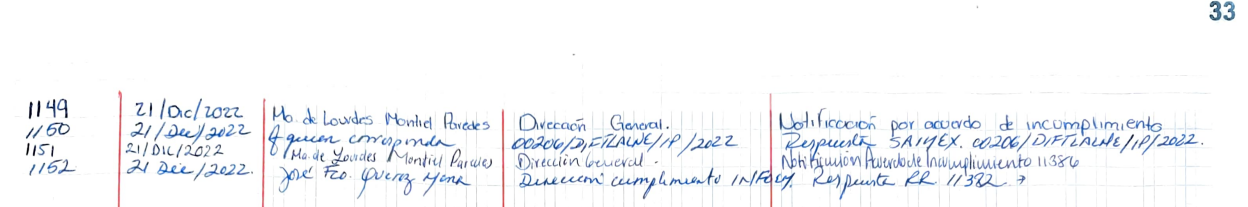 33
1149 21/Dic/2022 Ma. de Lourdes Montiel Paredes Dirección General. Notificación por acuerdo de incumplimiento
1150 21/Dic/2022 A quien corresponda 00206/DIFTLALNE/IP/2022 Respuesta SAIMEX. 00206/DIFTLALNE/IP/2022.
1151 21/Dic/2022 Ma. de Lourdes Montiel Paredes Dirección General. Notificación Acuerdo de Incumplimiento 11386
1152 21 Dic/2022. José Fco. Dirección cumplimiento INFOEM. Respuesta RR 11382.